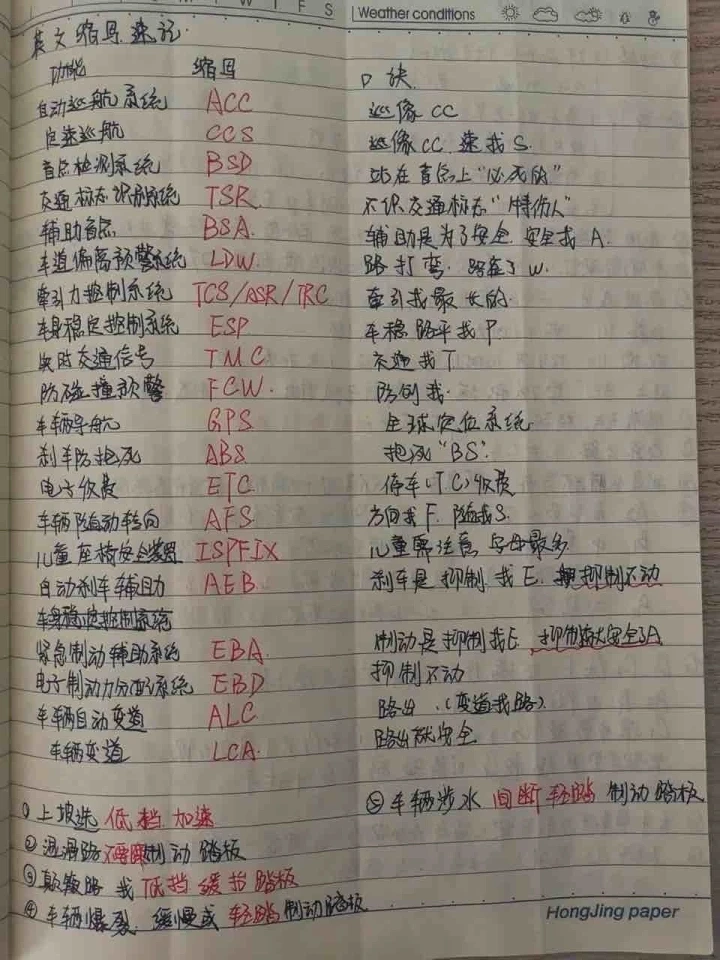 M T W T F S Weather conditions
英文缩写速记
功能 缩写 口诀
自动巡航系统 ACC 巡像CC
定速巡航 CCS 巡像CC 速我S.
盲点检测系统 BSD 站在盲点上"必死的"
交通标志识别系统 TSR 不识交通标志"特伤人"
辅助盲点 BSA. 辅助是为了安全.安全找A.
车道偏离预警系统 LDW. 路打弯.
牵引力控制系统 TCS/ASR/TRC 牵引找最长的.
车身稳定控制系统 ESP 车稳路平找P
实时交通信号 TMC 交通找T
防碰撞预警 FCW. 防创我.
车辆导航 GPS 全球定位系统
刹车防抱死 ABS 抱死"BS".
电子收费 ETC. 停车(TC)收费
车辆随动转向 AFS 方向找F.随我S.
儿童座椅安全装置 ISPFIX 儿童需注意字母最多.
自动刹车辅助 AEB. 刹车是抑制.我E.抑制不动
车身稳定控制系统
紧急制动辅助系统 EBA. 制动是抑制我E.
电子制动力分配系统 EBD 抑制不动
车辆自动变道 ALC 路出.(变道找路)
车辆变道 LCA. 路出就安全
①上坡选低档.加速
②湿滑路 制动踏板
③颠簸路 我低挡缓抬踏板
④车辆爆裂.缓慢或轻踏制动踏板
⑤车辆涉水间断轻踏制动踏板
HongJing paper